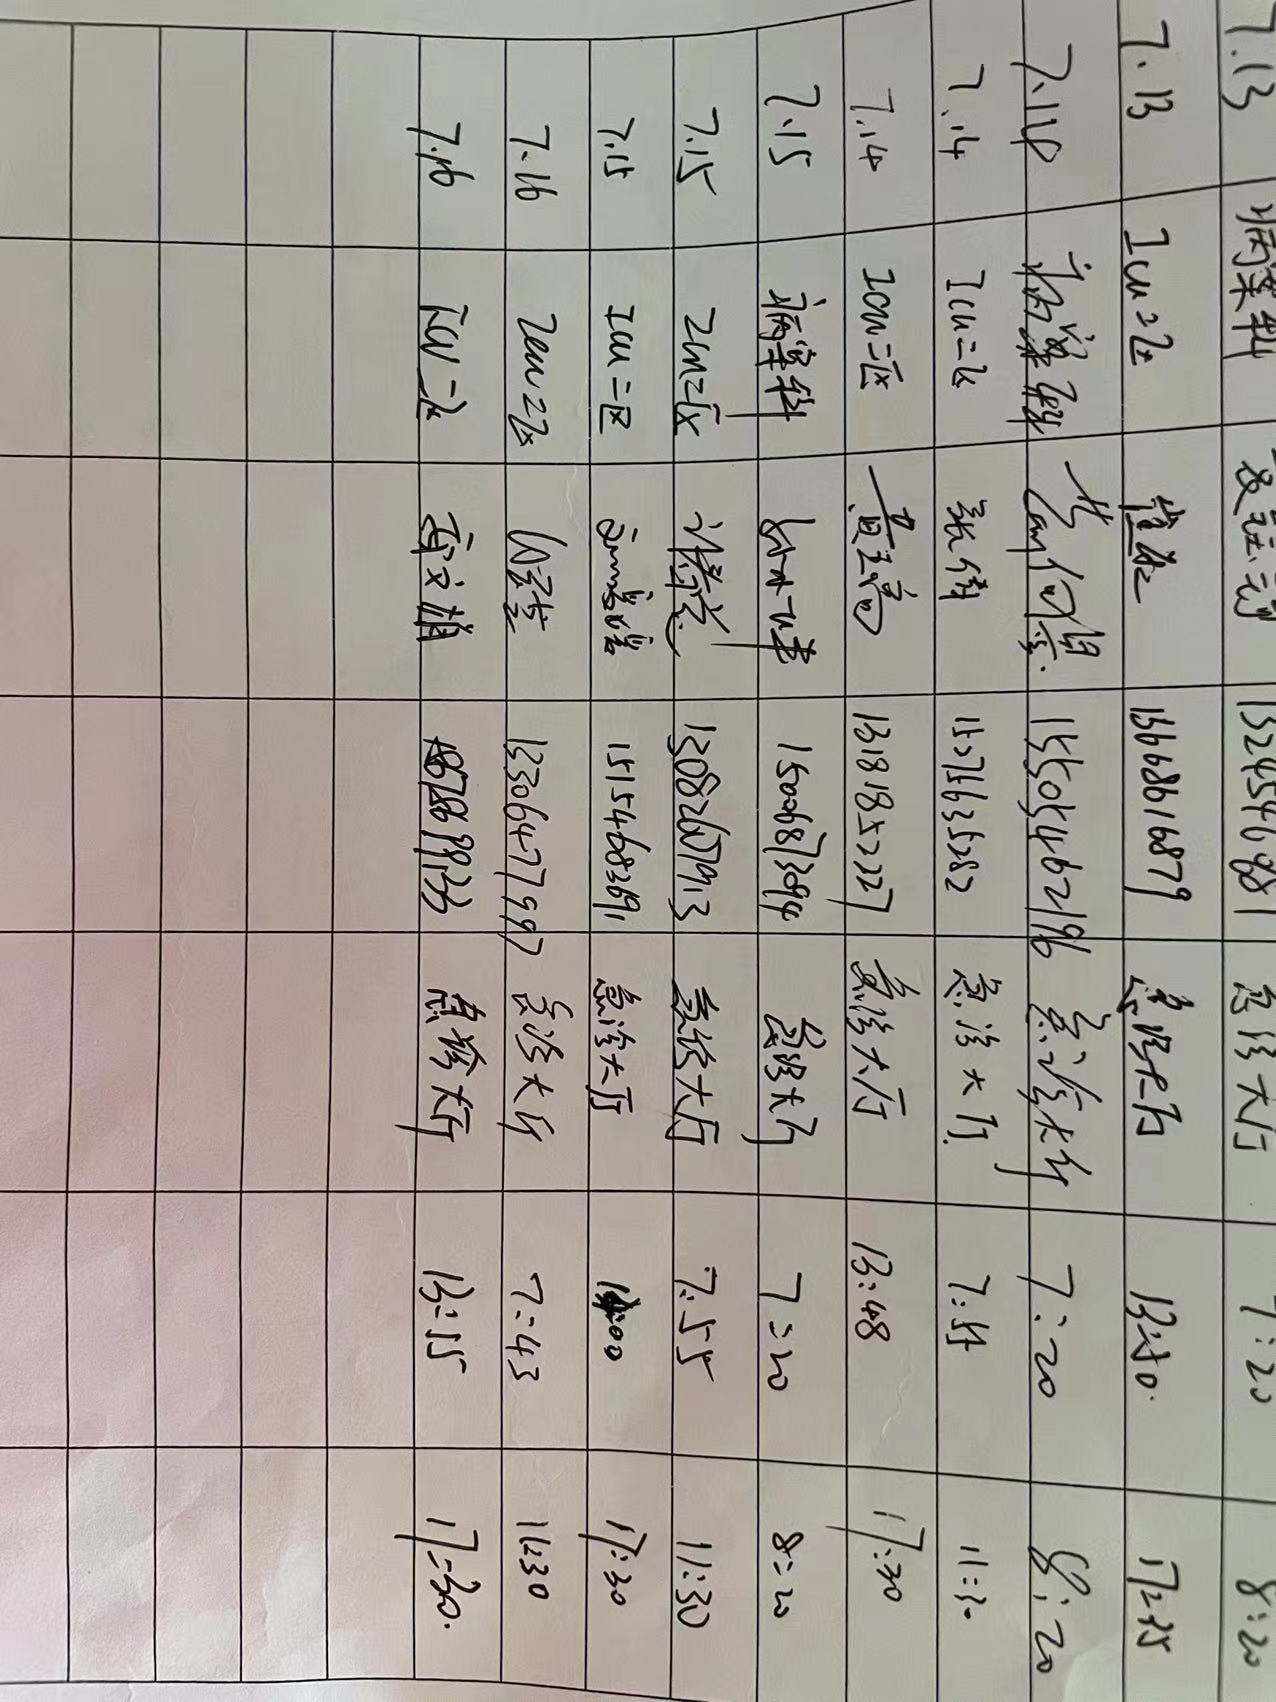 7.13 病案科 13245469881 急诊大厅 7:20 8:20
7.13 Icu二区 16668616879 急诊大厅 13:50 17:35
7.14 病案科 15505462196 急诊大厅 7:20 8:20
7.14 Icu二区 张倩 15275635282 急诊大厅 7:55 11:30
7.14 Icu二区 13181852227 急诊大厅 13:48 17:30
7.15 病案科 15006873094 急诊大厅 7:20 8:20
7.15 Icu二区 13082607913 急诊大厅 7:55 11:30
7.15 Icu二区 15154683691 急诊大厅 14:00 17:30
7.16 Icu二区 13306477597 急诊大厅 7:43 11:30
7.16 Icu二区 急诊大厅 13:55 17:30